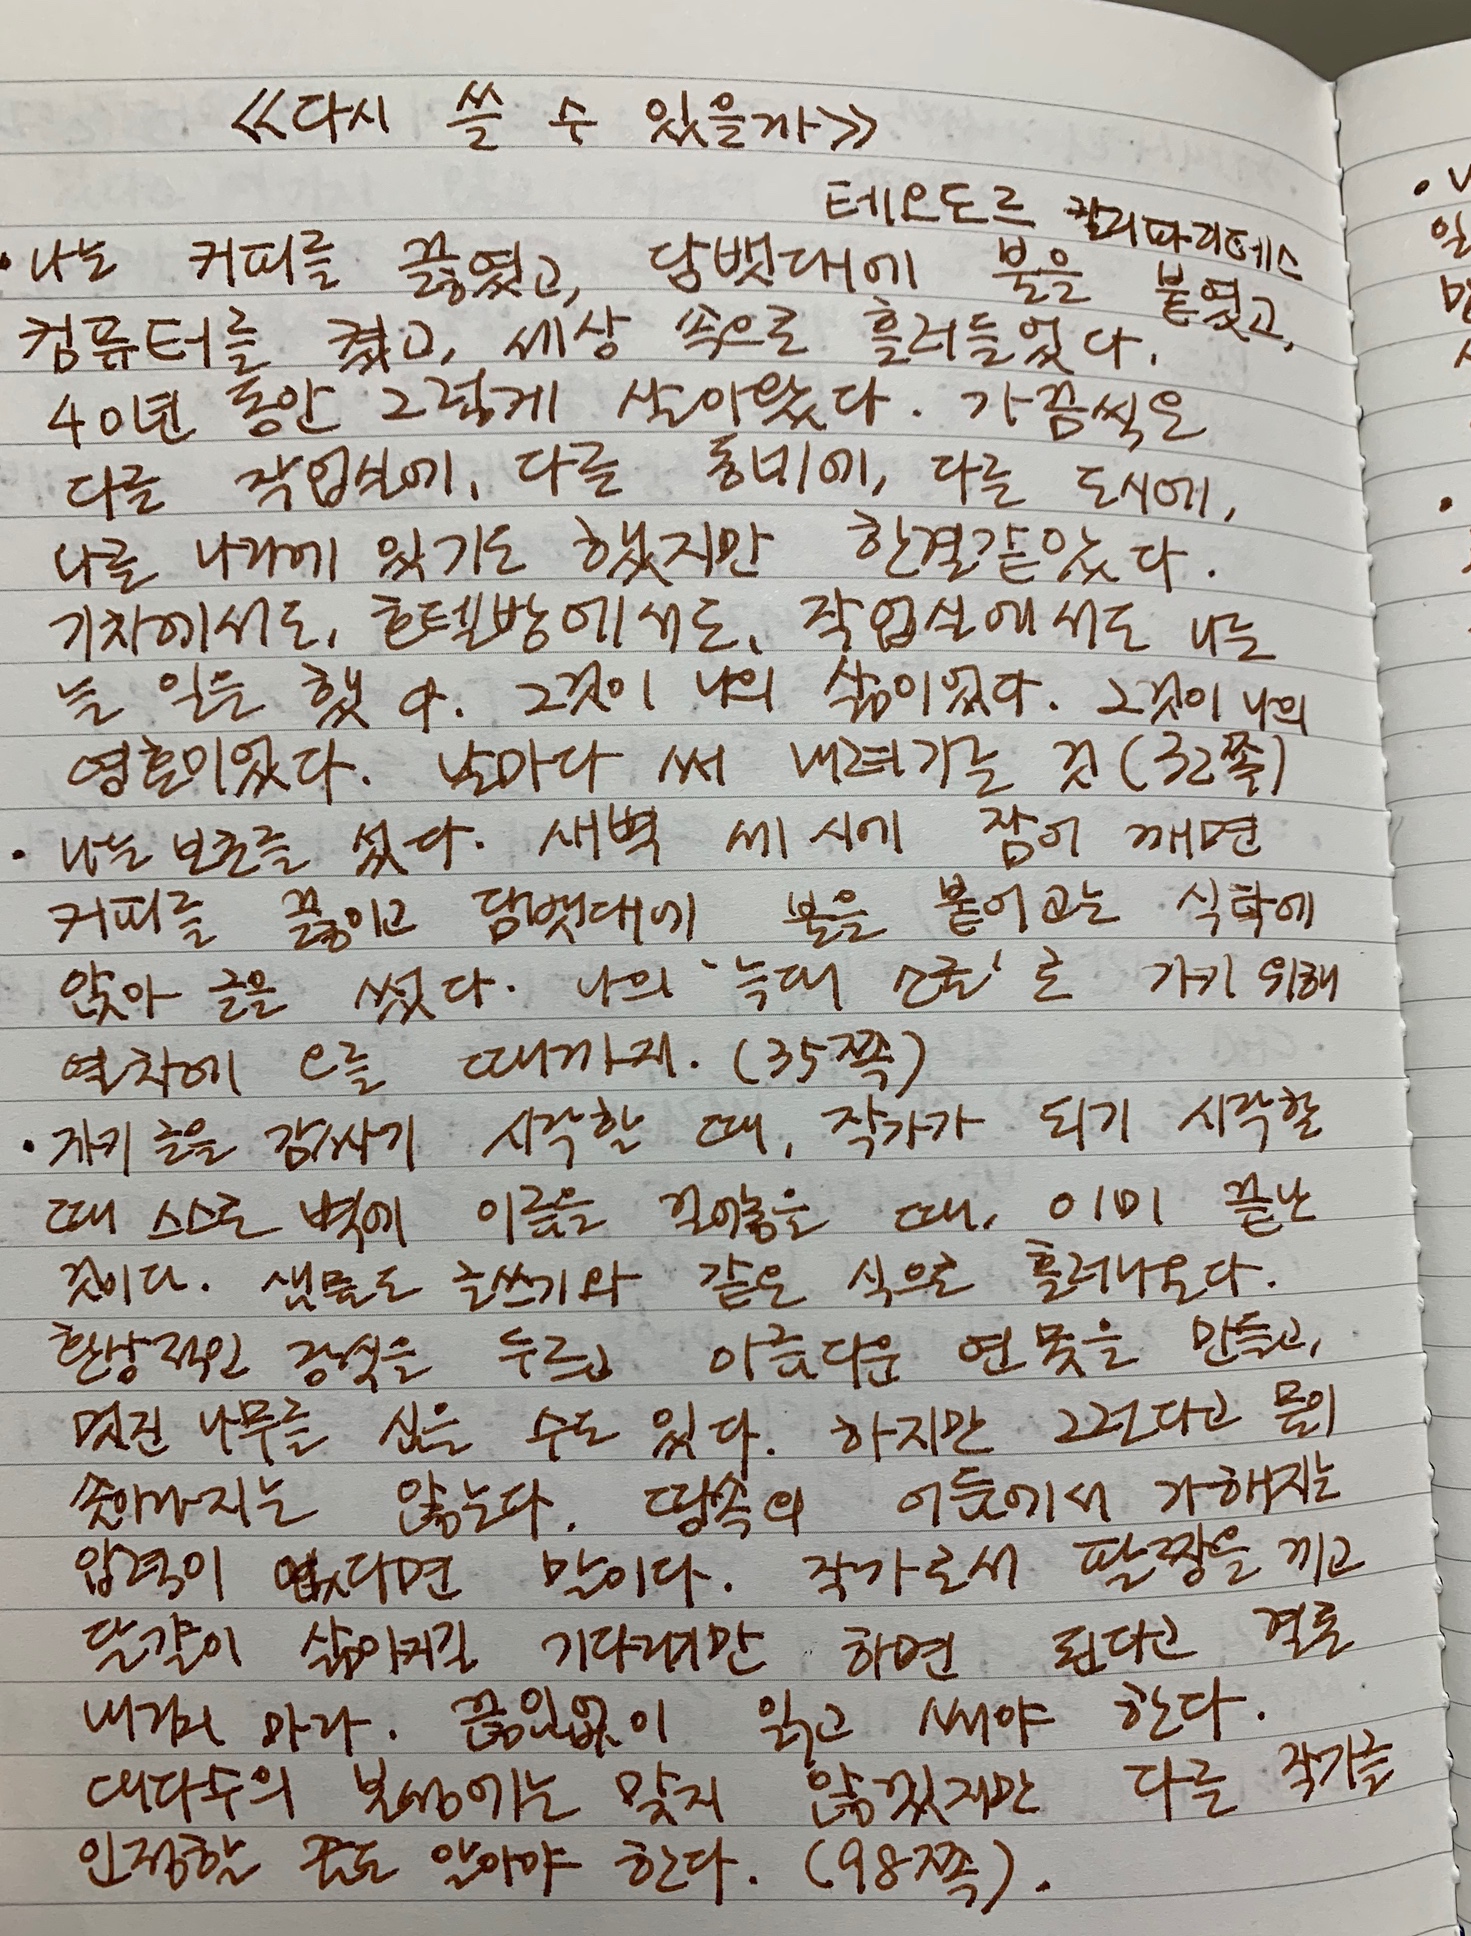 《다시 쓸 수 있을까》
테오도르 칼리파티데스
• 나는 커피를 끓였고, 담뱃대에 불을 붙였고,
컴퓨터를 켰고, 세상 속으로 흘러들었다.
40년 동안 그렇게 살아왔다. 가끔씩은
다른 작업실에, 다른 동네에, 다른 도시에,
다른 나라에 있기도 했지만 한결같았다.
기차에서도, 호텔방에서도, 작업실에서도 나는
늘 일을 했다. 그것이 나의 삶이었다. 그것이 나의
영혼이었다. 날마다 써 내려가는 것 (32쪽)
• 나는 보초를 섰다. 새벽 세 시에 잠이 깨면
커피를 끓이고 담뱃대에 불을 붙이고는 식탁에
앉아 글을 썼다. 나의 '늑대 소굴'로 가기 위해
열차에 오를 때까지. (35쪽)
• 자기 글을 감싸기 시작할 때, 작가가 되기 시작할
때 스스로 벽에 이름을 적어놓을 때, 이미 끝난
것이다. 샘물도 글쓰기와 같은 식으로 흘러나온다.
환상적인 장식을 두르고 아름다운 연못을 만들고,
멋진 나무를 심을 수도 있다. 하지만 그런다고 물이
솟아나지는 않는다. 땅속의 어둠에서 가해지는
압력이 없다면 말이다. 작가로서 팔짱을 끼고
달걀이 삶아지길 기다리기만 하면 된다고 결론
내리지 마라. 끊임없이 읽고 써야 한다.
대다수의 본성에는 맞지 않겠지만 다른 작가를
인정할 줄도 알아야 한다. (98쪽).